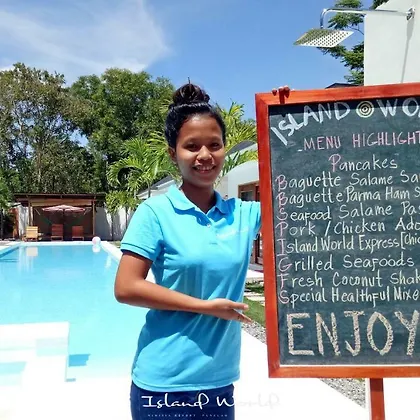 ISLAND WO
MENU HIGHLIGHT
Pancakes
Baguette Salame Sa
Baguette Parma Ham
Seafood Salame
Pork / Chicken Ado
Island World Express
Grilled Seafoods
Fresh Coconut Shak
Special Healthful Mixe
ENJOY
Island World